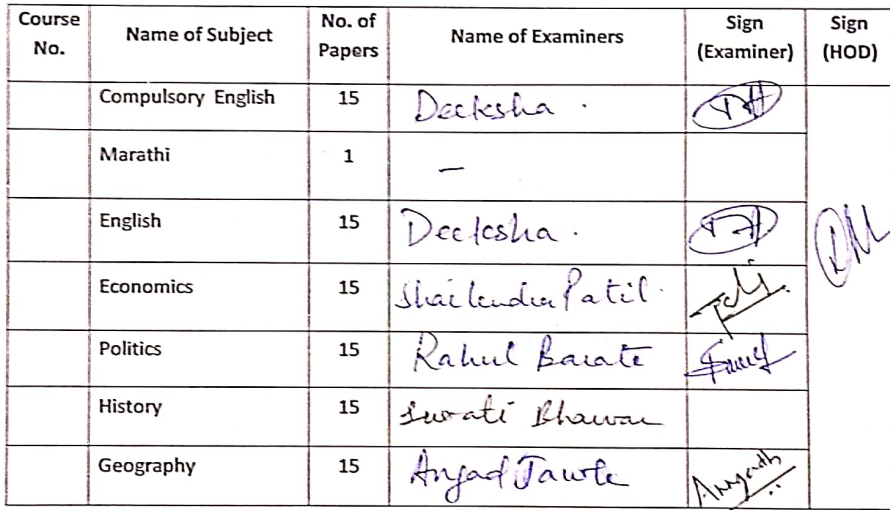 Course No. Name of Subject No. of Papers Name of Examiners Sign (Examiner) Sign (HOD)
Compulsory English 15 Deeksha .
Marathi 1 —
English 15 Deeksha .
Economics 15 Shailendra Patil .
Politics 15 Rahul Barate
History 15 Swati Bhawar
Geography 15 Angad Tawte